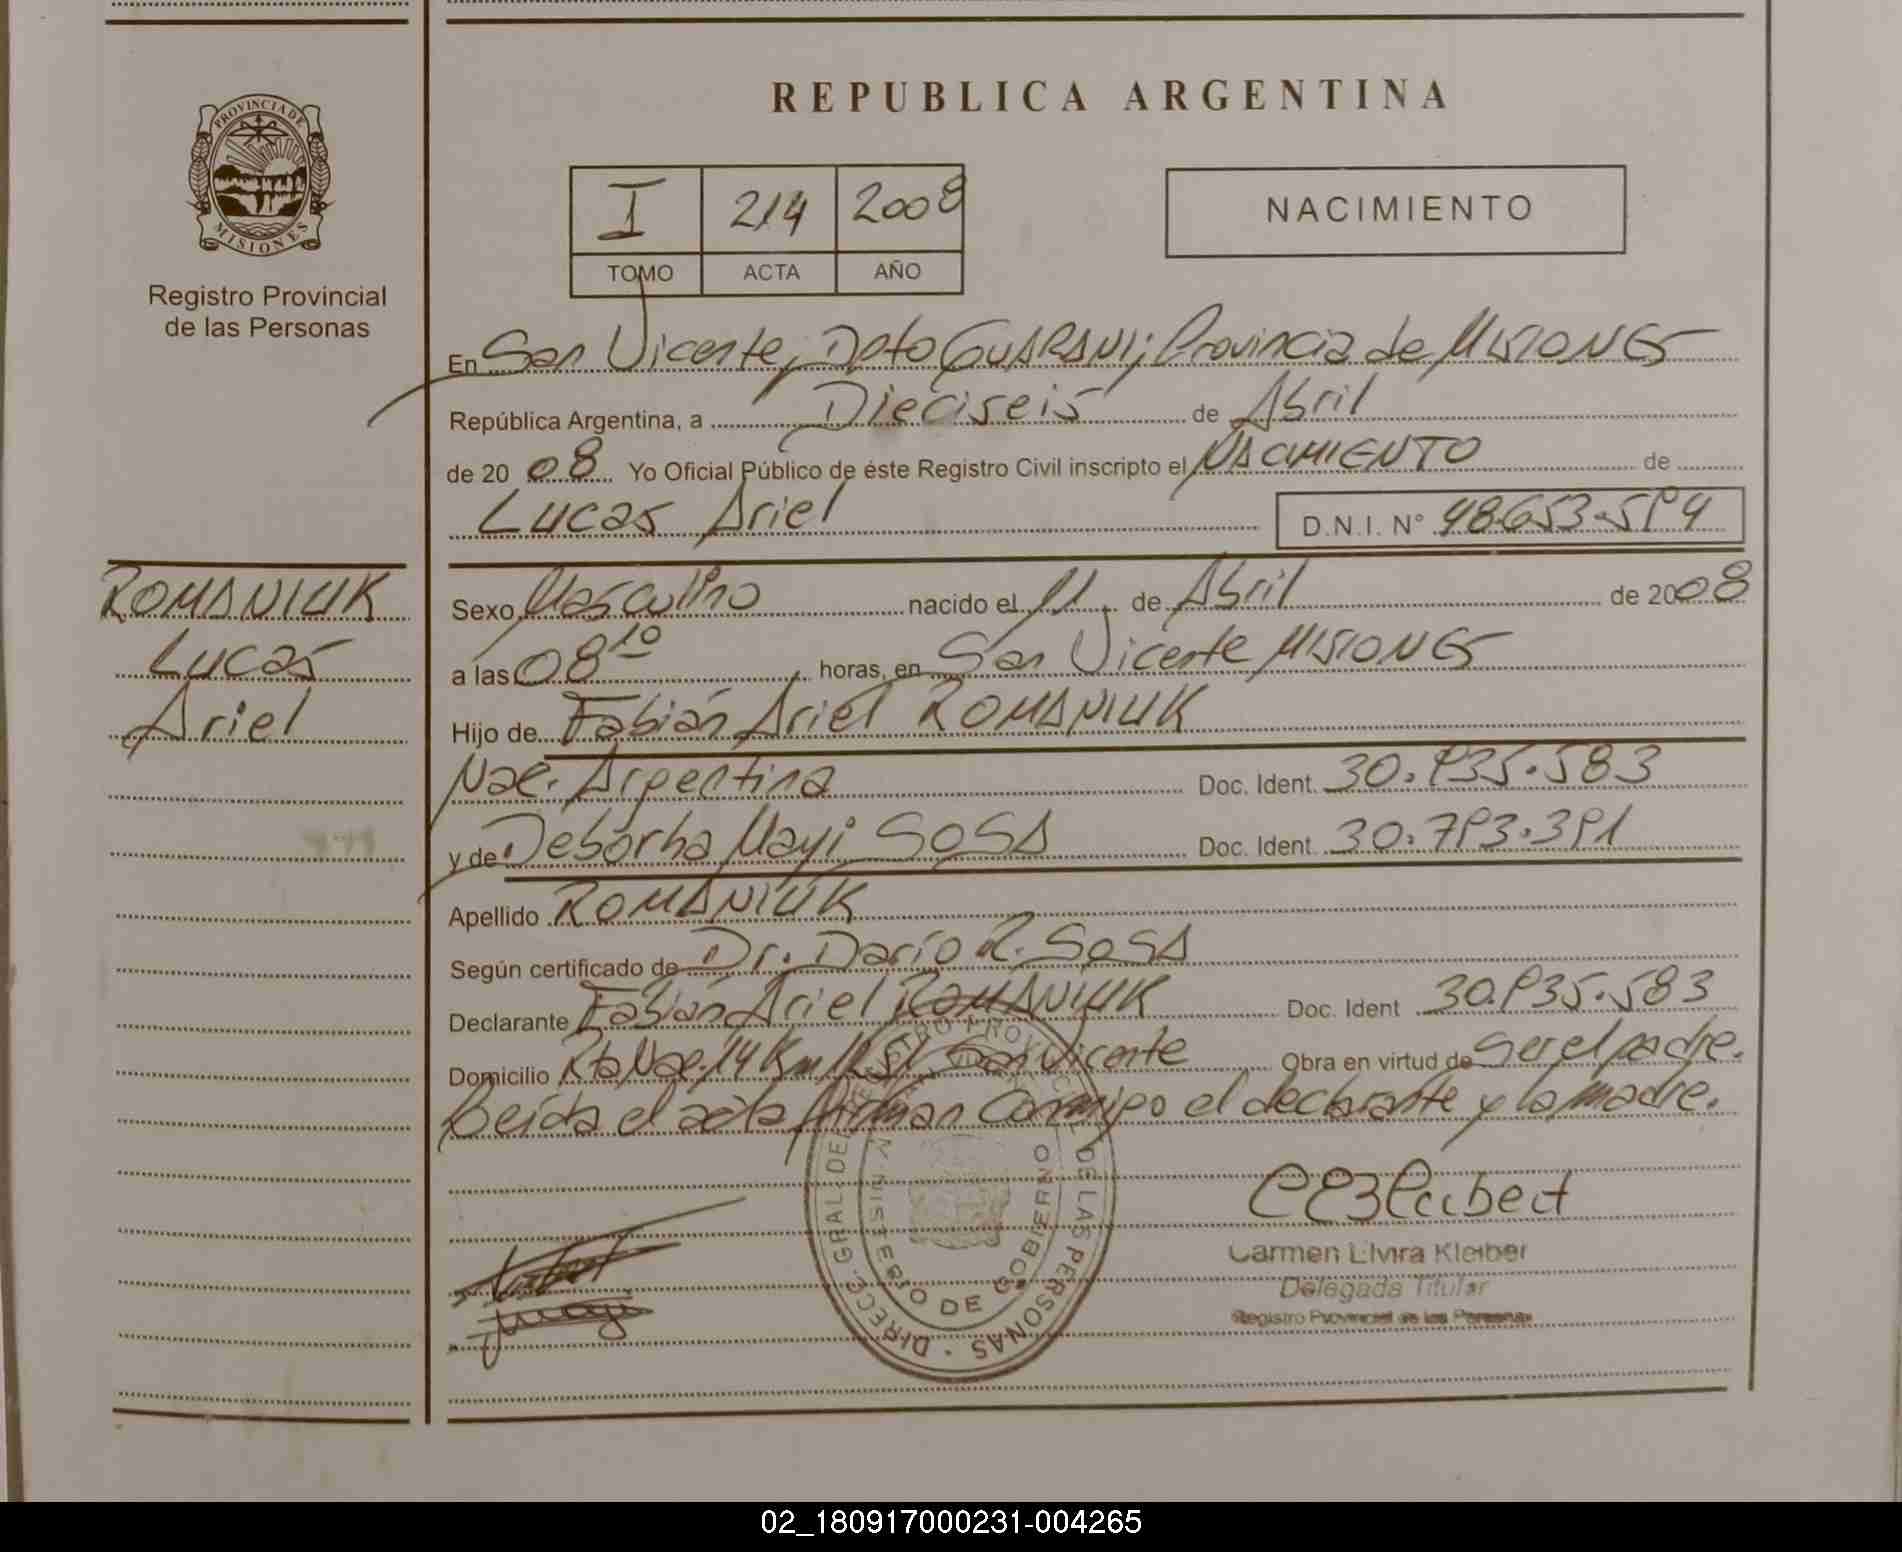 REPUBLICA ARGENTINA
PROVINCIA DE MISIONES
Registro Provincial
de las Personas
I 214 2008
TOMO ACTA AÑO
NACIMIENTO
En San Vicente, Dpto GUARANI; Provincia de MISIONES
República Argentina, a Dieciseis de Abril
de 2008 Yo Oficial Público de éste Registro Civil inscripto el NACIMIENTO de
Lucas Ariel D.N.I. Nº 48.653.594
ROMANIUK
Lucas
Ariel
Sexo Masculino nacido el 11 de Abril de 2008
a las 08 10 horas, en San Vicente MISIONES
Hijo de Fabián Ariel ROMANIUK
Nac. Argentina Doc. Ident. 30.935.583
y de Deborha Mayi SOSA Doc. Ident. 30.793.391
Apellido ROMANIUK
Según certificado de Dr. Darío R. SOSA
Declarante Fabián Ariel ROMANIUK Doc. Ident 30.935.583
Domicilio Rta Nac. 14 Km San Vicente Obra en virtud de Ser el padre.
Leída el acta firman conmigo el declarante y la madre.
DIRECC. GRAL. DEL REGISTRO PROVINCIAL DE LAS PERSONAS
MINISTERIO DE GOBIERNO
Carmen Elvira Kleiber
Delegada Titular
Registro Provincial de las Personas
02_180917000231-004265